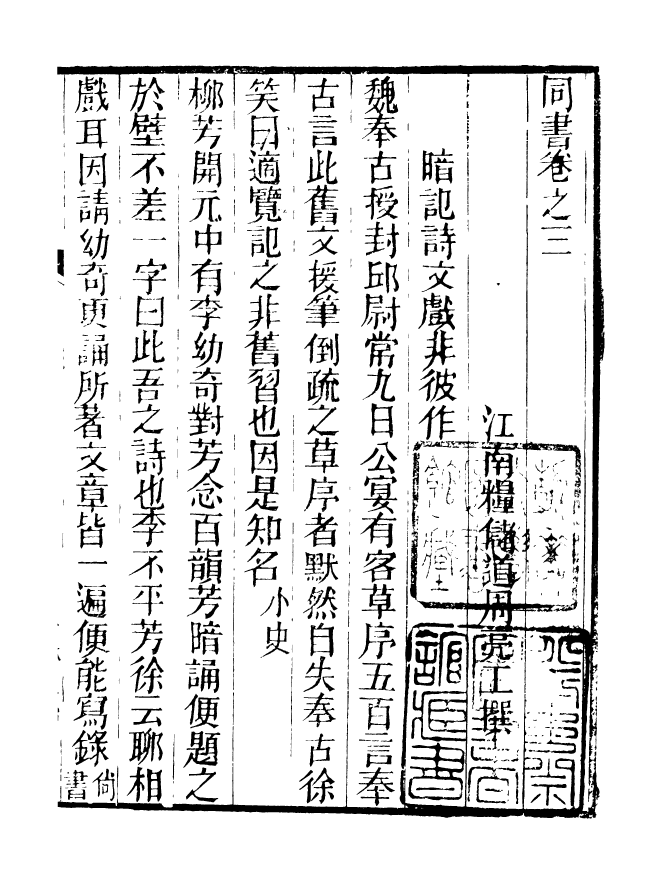 同書卷之三
江南糧儲道周亮工撰
暗記詩文戲非彼作
魏奉古授封邱尉常九日公宴有客草序五百言奉
古言此舊文援筆倒疏之草序者默然自失奉古徐
笑曰適覽記之非舊習也因是知名小史
柳芳開元中有李幼奇對芳念百韻芳暗誦便題之
於壁不差一字曰此吾之詩也李不平芳徐云聊相
戲耳因請幼奇更誦所著文章皆一遍便能寫錄尙
書